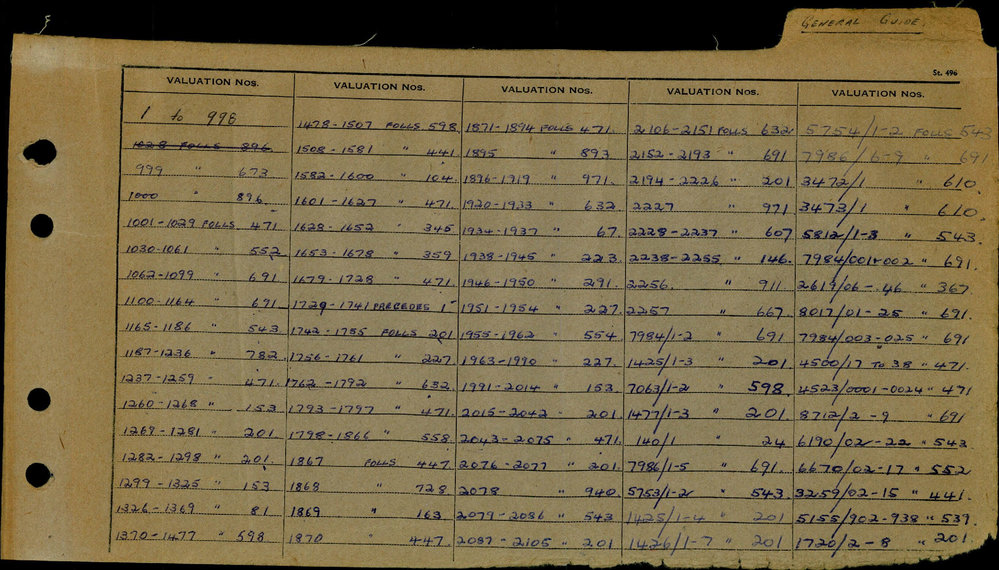 GENERAL GUIDE.
St. 496
VALUATION Nos.
1 to 998
1028 FOLLS 896
999 " 673
1000 " 896
1001-1029 FOLLS 471
1030-1061 552
1062-1099 " 691
1100-1164 " 691
1165-1186 " 543
1187-1236 " 782
1237-1259 - 471
1260-1268 " 153
1269-1281 " 201
1282-1298 " 201
1299-1325 " 153
1326-1369 " 81
1370-1477 " 598
VALUATION Nos.
1478-1507 FOLLS 598
1508-1581 " 441
1582-1600 " 104
1601-1627 " 471
1628-1652 " 345
1653-1678 " 359
1679-1728 " 471
1729-1741 PRECEDES 1
1742-1755 FOLLS 201
1756-1761 " 227
1762-1792 " 632
1793-1797 " 471
1798-1866 " 558
1867 FOLLS 447
1868 " 728
1869 " 163
1870 " 447
VALUATION Nos.
1871-1894 FOLLS 471
1895 " 893
1896-1919 " 971
1920-1933 " 632
1934-1937 " 67
1938-1945 " 223
1946-1950 " 291
1951-1954 " 227
1955-1962 " 554
1963-1990 " 227
1991-2014 " 153
2015-2042 - 201
2043-2075 " 471
2076-2077 " 201
2078 " 940
2079-2086 " 543
2087-2105 " 201
VALUATION Nos.
2106-2151 FOLLS 632
2152-2193 " 691
2194-2226 " 201
2227 " 971
2228-2237 " 607
2238-2255 " 146
2256. " 911
2257 " 667
7984/1-2 " 691
1425/1-3 " 201
7063/1-2 " 598
1477/1-3 " 201
140/1 " 24
7986/1-5 " 691
5753/1-2 " 543
1425/1-4 " 201
1426/1-7 " 201
VALUATION Nos.
5754/1-2 FOLLS 543
7986/6-9 " 691
3472/1 " 610
3473/1 " 610
5812/1-3 " 543
7984/001-002 " 691
2619/06-46 " 367
8017/01-25 " 691
7984/003-025 " 691
4500/17 TO 38 " 471
4523/0001-0024 " 471
8712/2-9 " 691
6190/02-22 " 543
6670/02-17 " 552
3259/02-15 " 441
5155/902-938 " 539
1720/2-8 " 201